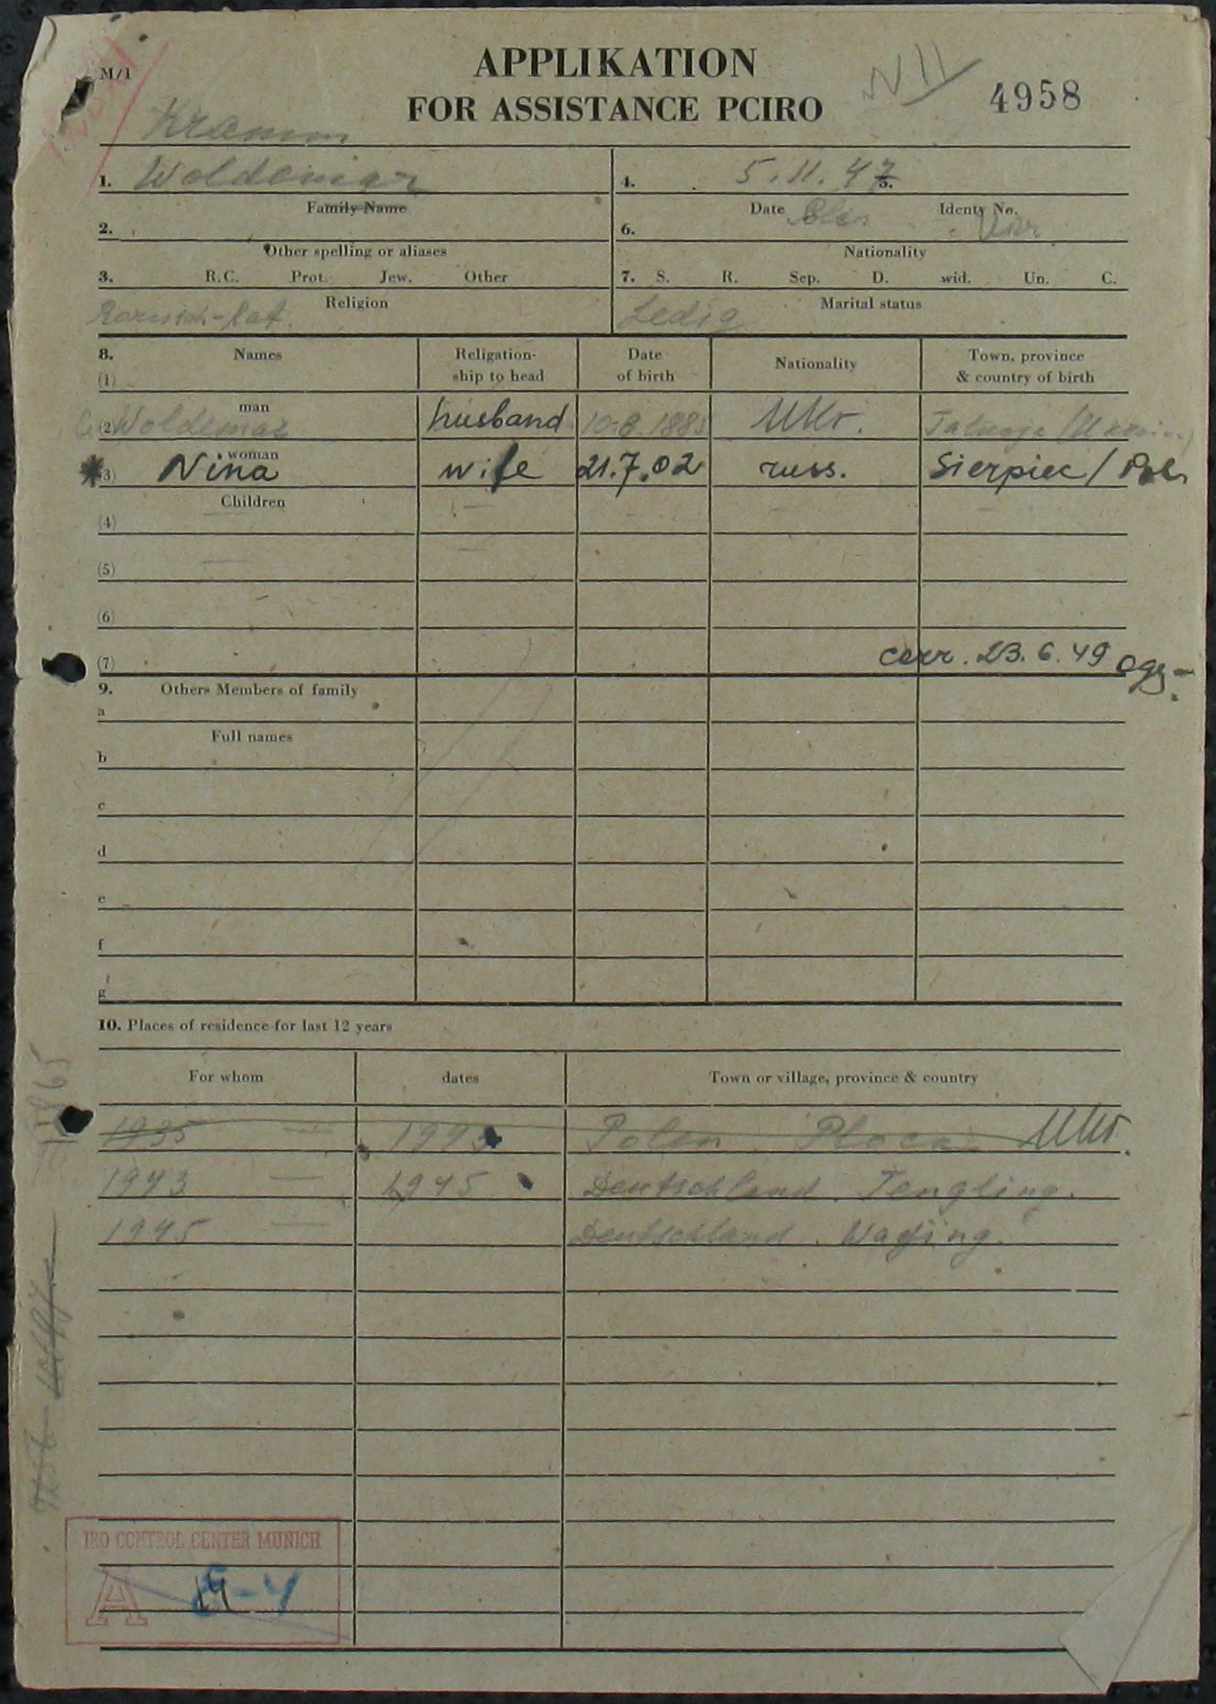 M/1
APPLIKATION
FOR ASSISTANCE PCIRO
N 11
4958
Kramm
1. Woldemar
Family Name
4. 5.11.47 5.
Date Identy No.
2.
Other spelling or aliases
6. Polen Ukr
Nationality
3. R.C. Prot. Jew. Other
Religion
7. S. R. Sep. D. wid. Un. C.
Marital status
Ledig
8. Names Religation-ship to head Date of birth Nationality Town, province & country of birth
(1)
man
(2 Woldemar husband 10.8.1885 Ukr.
woman
(3) Nina wife 21.7.02 russ. Sierpiec / Pol.
Children
(4)
(5)
(6)
(7)
corr. 23.6.49
9. Others Members of family
a
Full names
b
c
d
e
f
g
10. Places of residence for last 12 years
For whom dates Town or village, province & country
1935 — 1943 Polen Ploca Ukr.
1943 — 1945 Deutschland. Tengling.
1945 — Deutschland. Waging.
IRO CONTROL CENTER MUNICH
A